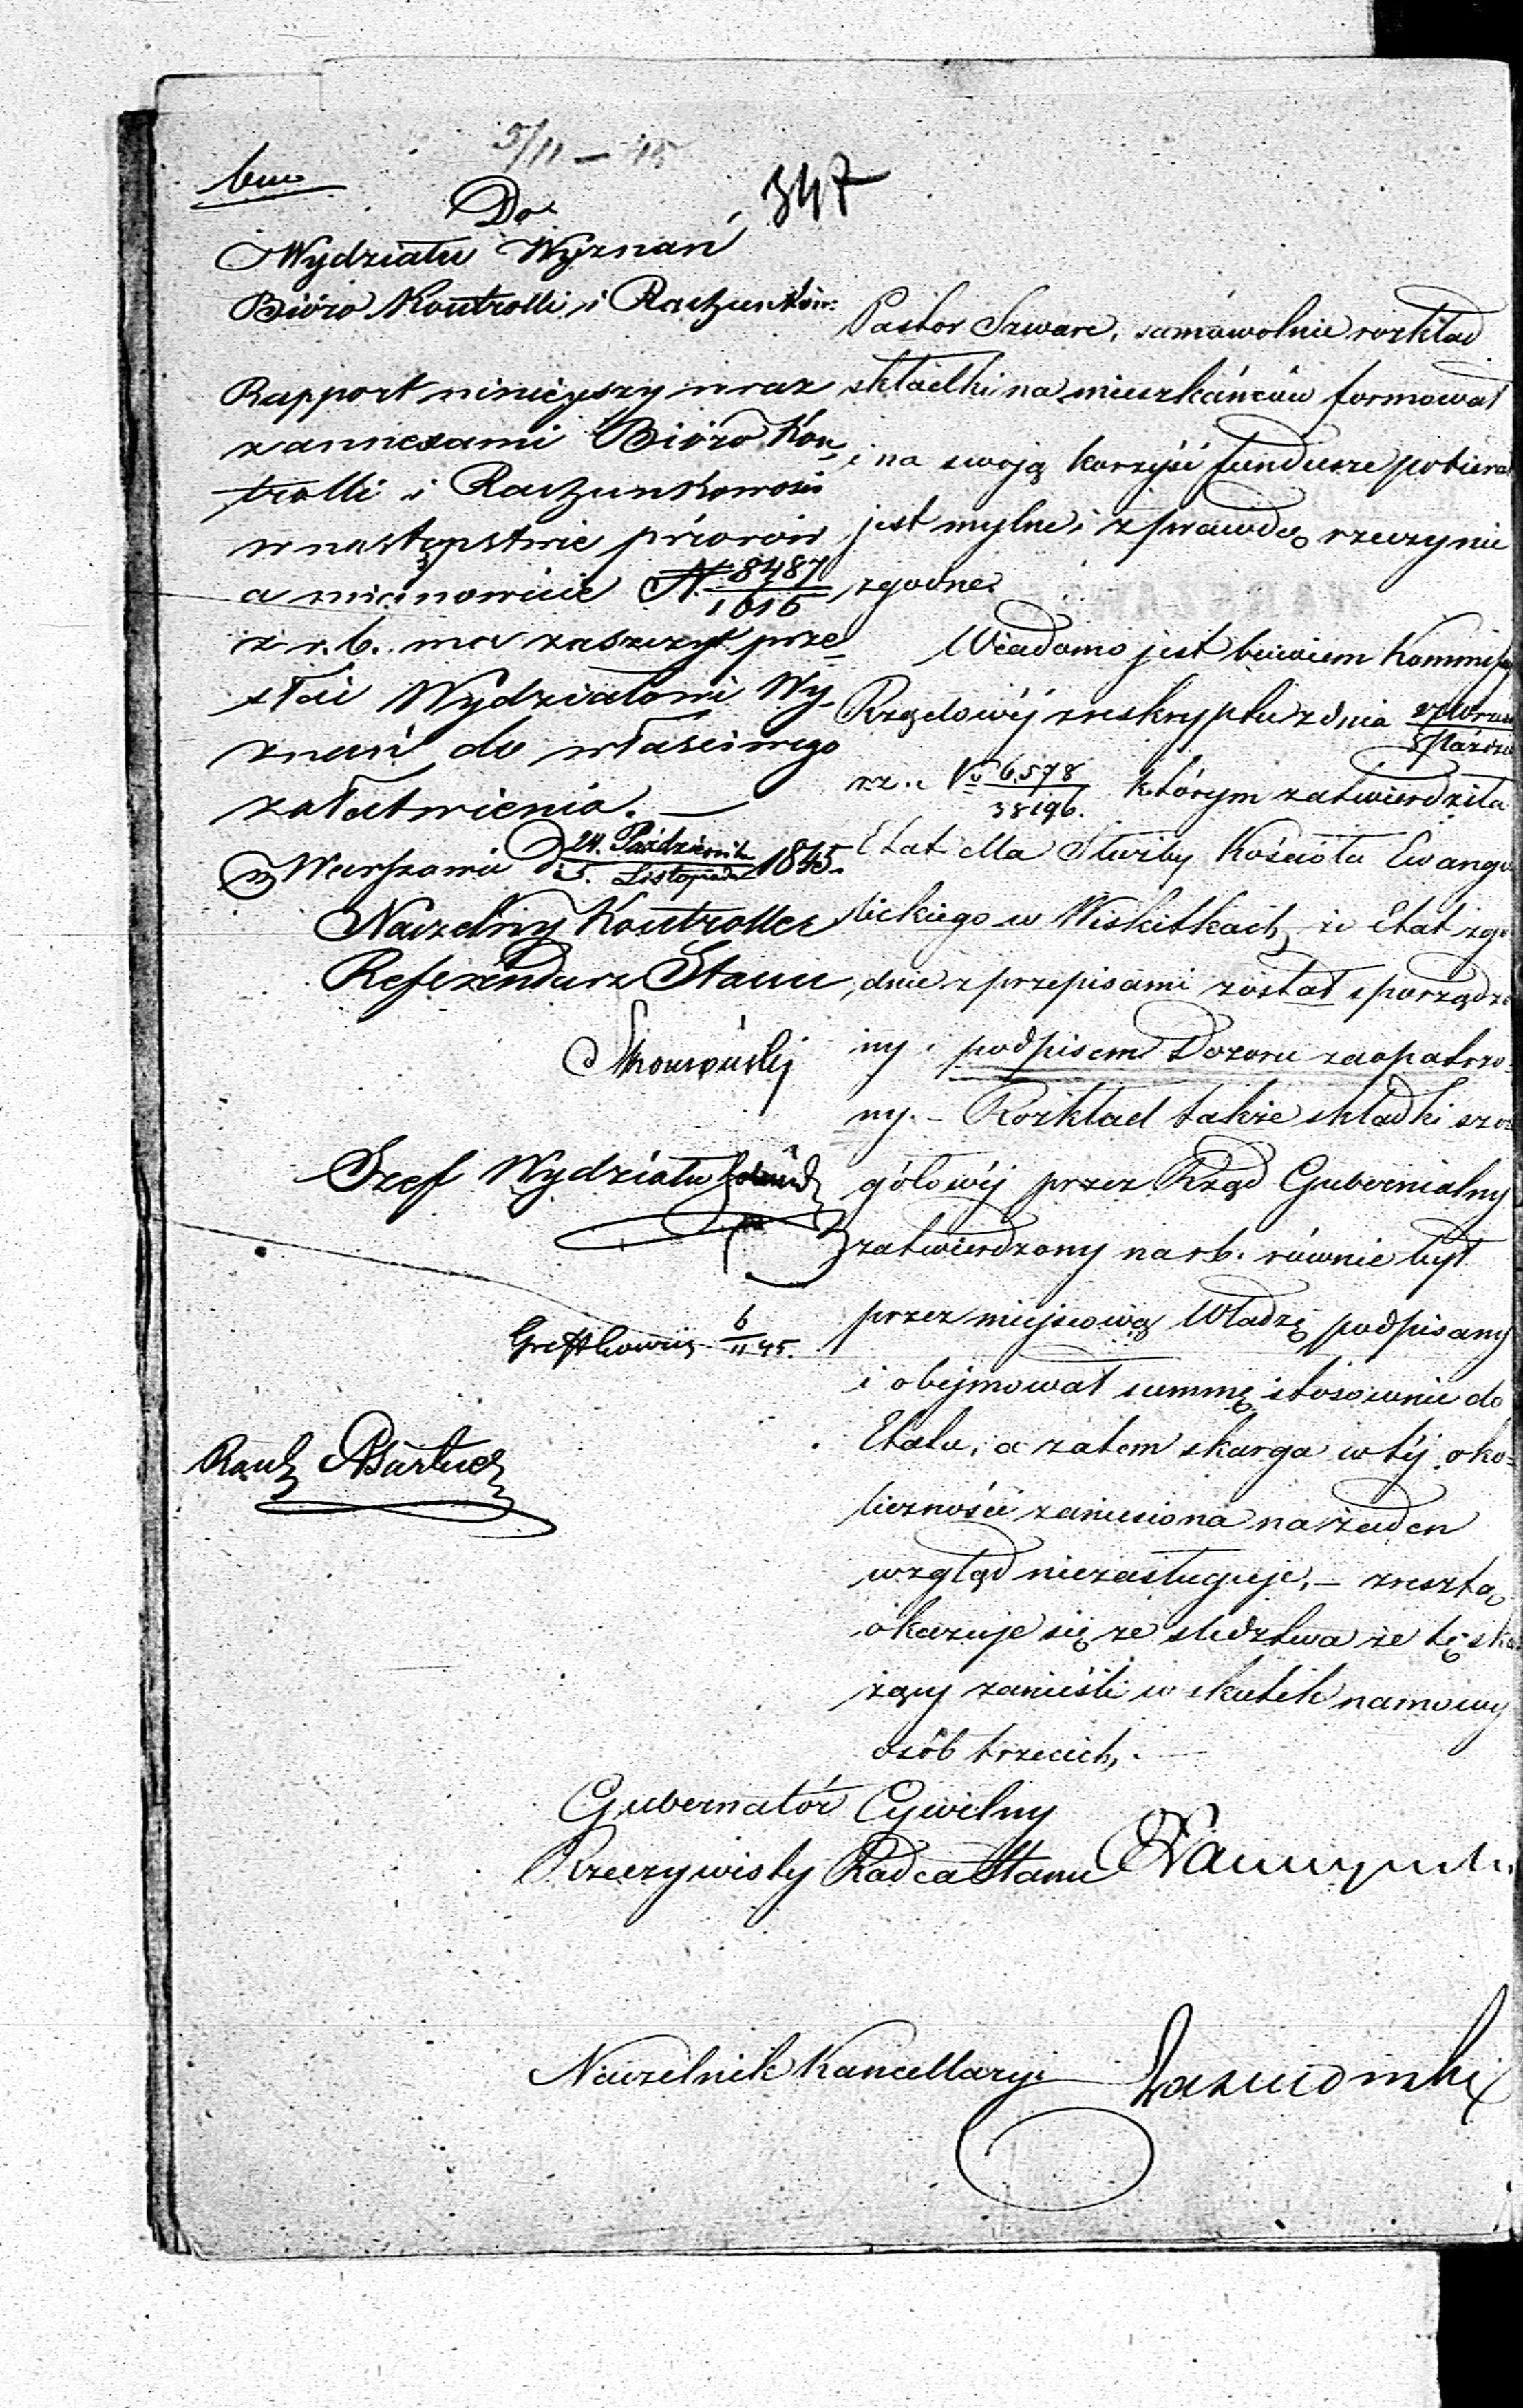 5/11 – 45
347
Do
Wydziału Wyznań
Bióro Kontrolli i Rachunków:
Rapport niniejszy wraz
z annexami Bióro Kon-
trolli i Rachunkowości
w następstwie priorów
a mianowicie N. 8487/1616
z r. b. ma zaszczyt prze-
słać Wydziałowi Wy-
znań do właściwego
załatwienia. —
w Warszawie d. 24. Październik / 5. Listopada 1845.
Naczelny Kontroller
Referendarz Stanu
Szef Wydziału
6/11 45.
Pastor Szwarc, samowolnie rozkład
składki na mieszkańców formował
i na swoją korzyść fundusze pobierał
jest mylne i z prawdą rzeczy nie
zgodne.
Wiadomo jest bowiem Kommiss
Rządowéj z reskryptu z dnia
r.z. No 6,578/38196. którym zatwierdziła
Etat dla Służby Kościoła Ewange
lickiego w Wiskitkach, że Etat zgo
dnie z przepisami został sporządzo
ny i podpisem Dozoru zaopatrzo-
ny. – Rozkład także składki szcze
gółowéj przez Rząd Gubernialny
zatwierdzony na r.b. równie był
przez miejscową Władzę podpisany
i obejmował summę stosownie do
Etatu, a zatem skarga w téj oko-
liczności zaniesiona na żaden
wzgląd niezasługuje. – zresztą
okazuje się ze śledztwa że tę skar
żący zanieśli w skutek namowy
osób trzecich. —
Gubernator Cywilny
Rzeczywisty Radca Stanu
Naczelnik Kancellaryi